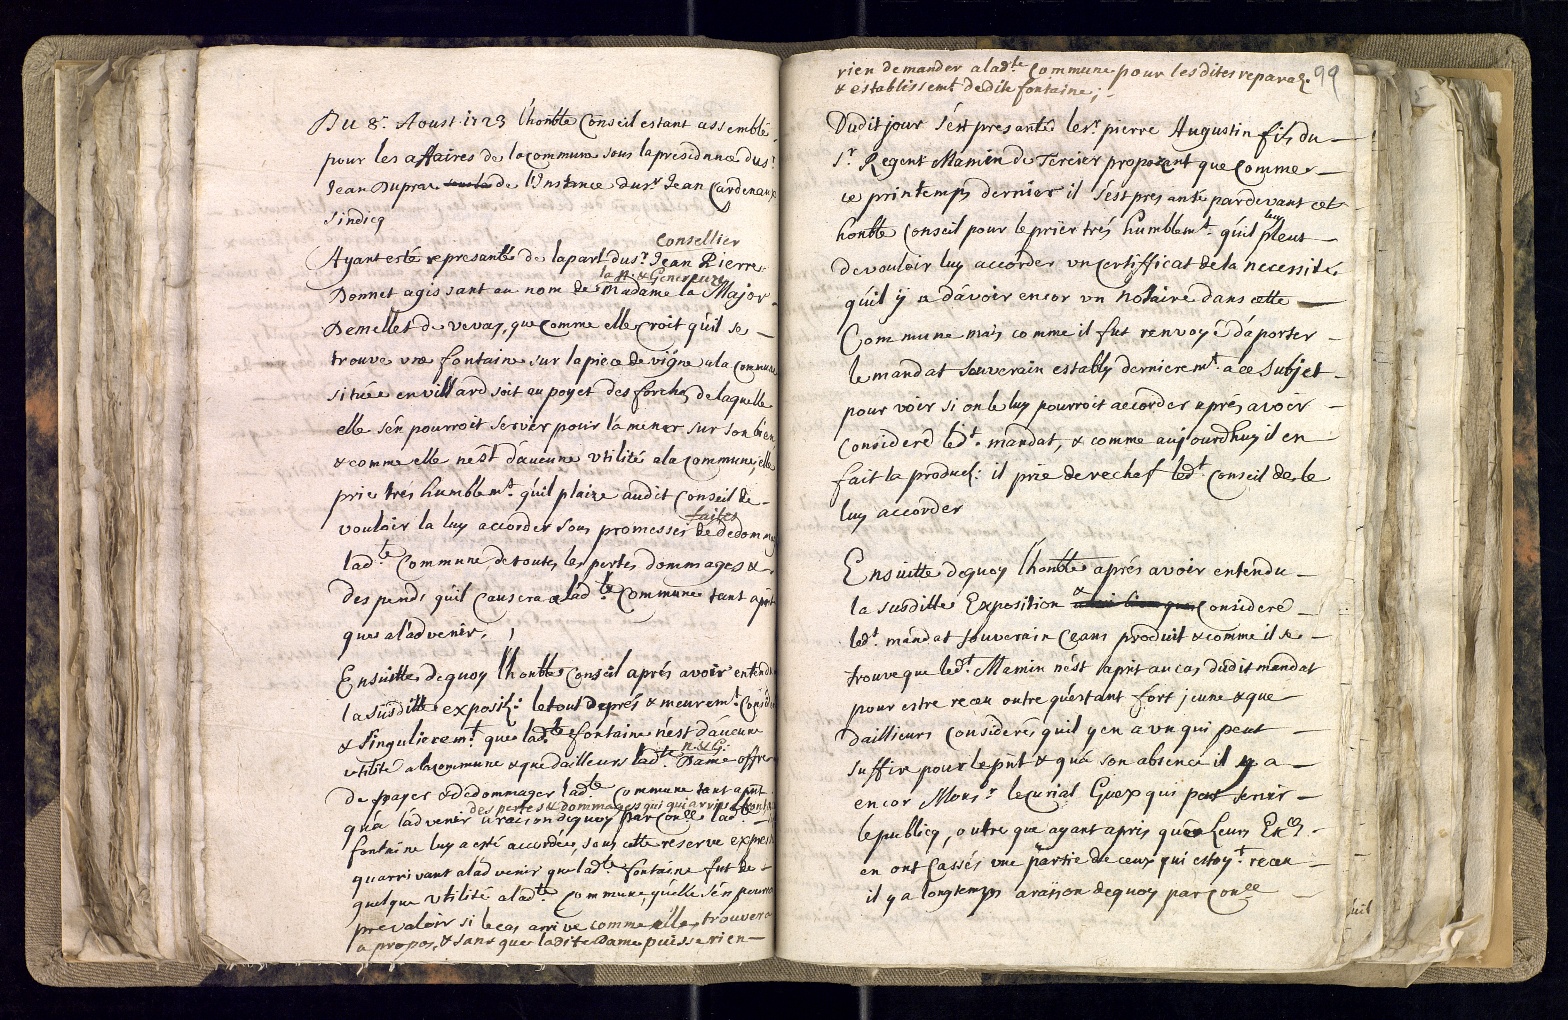 Du 8e. Aoust 1723 l'honble Conseil estant assemblé
pour les affaires de la commune sous la presidence du sr
Jean Dupraz de l'Instance du sr. Jean Cardeneaux
sindicq
Consellier
Ayant esté represanté de la part du sr. Jean Pierre
la N. & Genereuze
Donnet agissant au nom de Madame la Major
Demellet de vevay, que comme elle croit qu'il se
trouve vne fontaine sur la piece de vigne a la commune
situëe en villard soit au poyet des forches de laquelle
elle s'en pourroit servir pour la mener sur son bien
& comme elle n'est d'aucune vtilité a la commune elle
prie très humblemt. qu'il plaize audit Conseil de
faites
vouloir la luy accorder sous promesses de dedommag
ladte Commune de toutes les pertes dommages &
despends qu'il causera a ladte Commune tant apnt
que a l'advenir;
Ensuitte dequoy l'honble Conseil aprés avoir entendu
la susditte exposion: le tout de prés & meuremt. Consid
& singulieremt. que ladte fontaine n'est d'aucune
N. & G.
vtilité a la commune & que d'ailleurs ladte. Dame offre
de payer & dedommager ladte Commune tant apnt
des pertes & dommages qui qui arrive a
qu'a ladvenir a raison dequoy par Conce lad.
fontaine luy a esté accordée, sous cette reserve expresse
qu'arrivant a ladvenir que ladte fontaine fut de
quelque vtilité a ladte Commune, qu'elle s'en pourra
prevaloir si le cas arrive comme elle trouvera
a propos, & sans que ladite Dame puisse rien
99
rien demander a ladte Commune pour les dites reparaōn.
& establissemt de dite fontaine;
Dudit jour s'est presanté le sr. pierre Augustin fils du
sr. Regent Mamin de Tercier propozant que comme
ce printemps dernier il s'est presanté pardevant cet
honble Conseil pour le priër trés humblemt. qu'il leur pleut
de vouloir luy accorder vn certifficat de la necessité
qu'il y a d'avoir encor vn Notaire dans cette
Commune mais comme il fut renvoyé d'aporter
le mandat souverain estably dernieremt. a ce subjet
pour voir si on le luy pourroit accorder aprés avoir
consideré ledt. mandat, & comme aujourdhuy il en
fait la produc̄: il prie derechef ledt Conseil de le
luy accorder
Ensuitte dequoy l'honble aprés avoir entendu
la susditte Exposition & consideré
ledt. mandat souverain Ceans produit & comme il se
trouve que ledt. Mamin n'est apnt au cas dudit mandat
pour estre receu outre qu'estant fort jeune & que
dailleurs consideré qu'il y en a vn qui peut
suffire pour le pnt & qu'a son absence il y a
encor Monsr. le curial Guex qui peut servir
le publicq, outre que ayant apris que Leurs Exces
en ont cassés vne partie de ceux qui estoyt. receu
il y a longtemps a raison dequoy par Conce